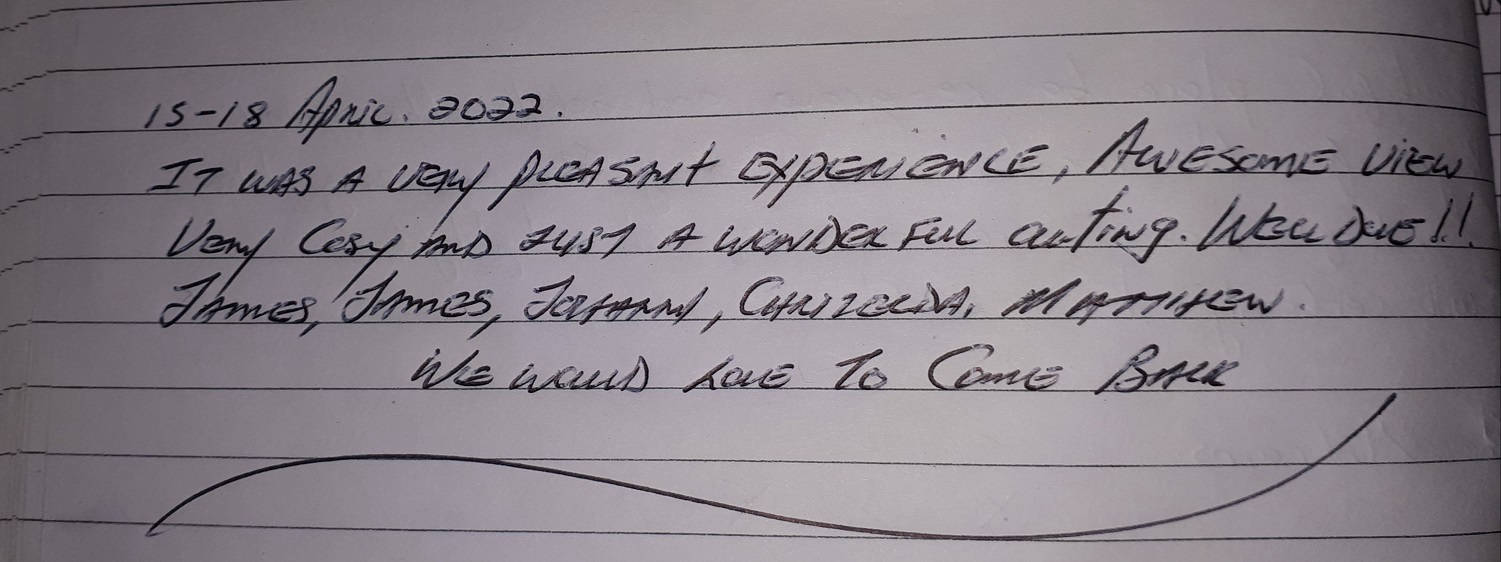 15-18 April. 2022.
It was a very pleasant experience, Awesome view
Very Cosy and just a wonderful outing. Well Done!!.
James, James, Johanni, Chrizelda, Matthew.
We would love to Come Back